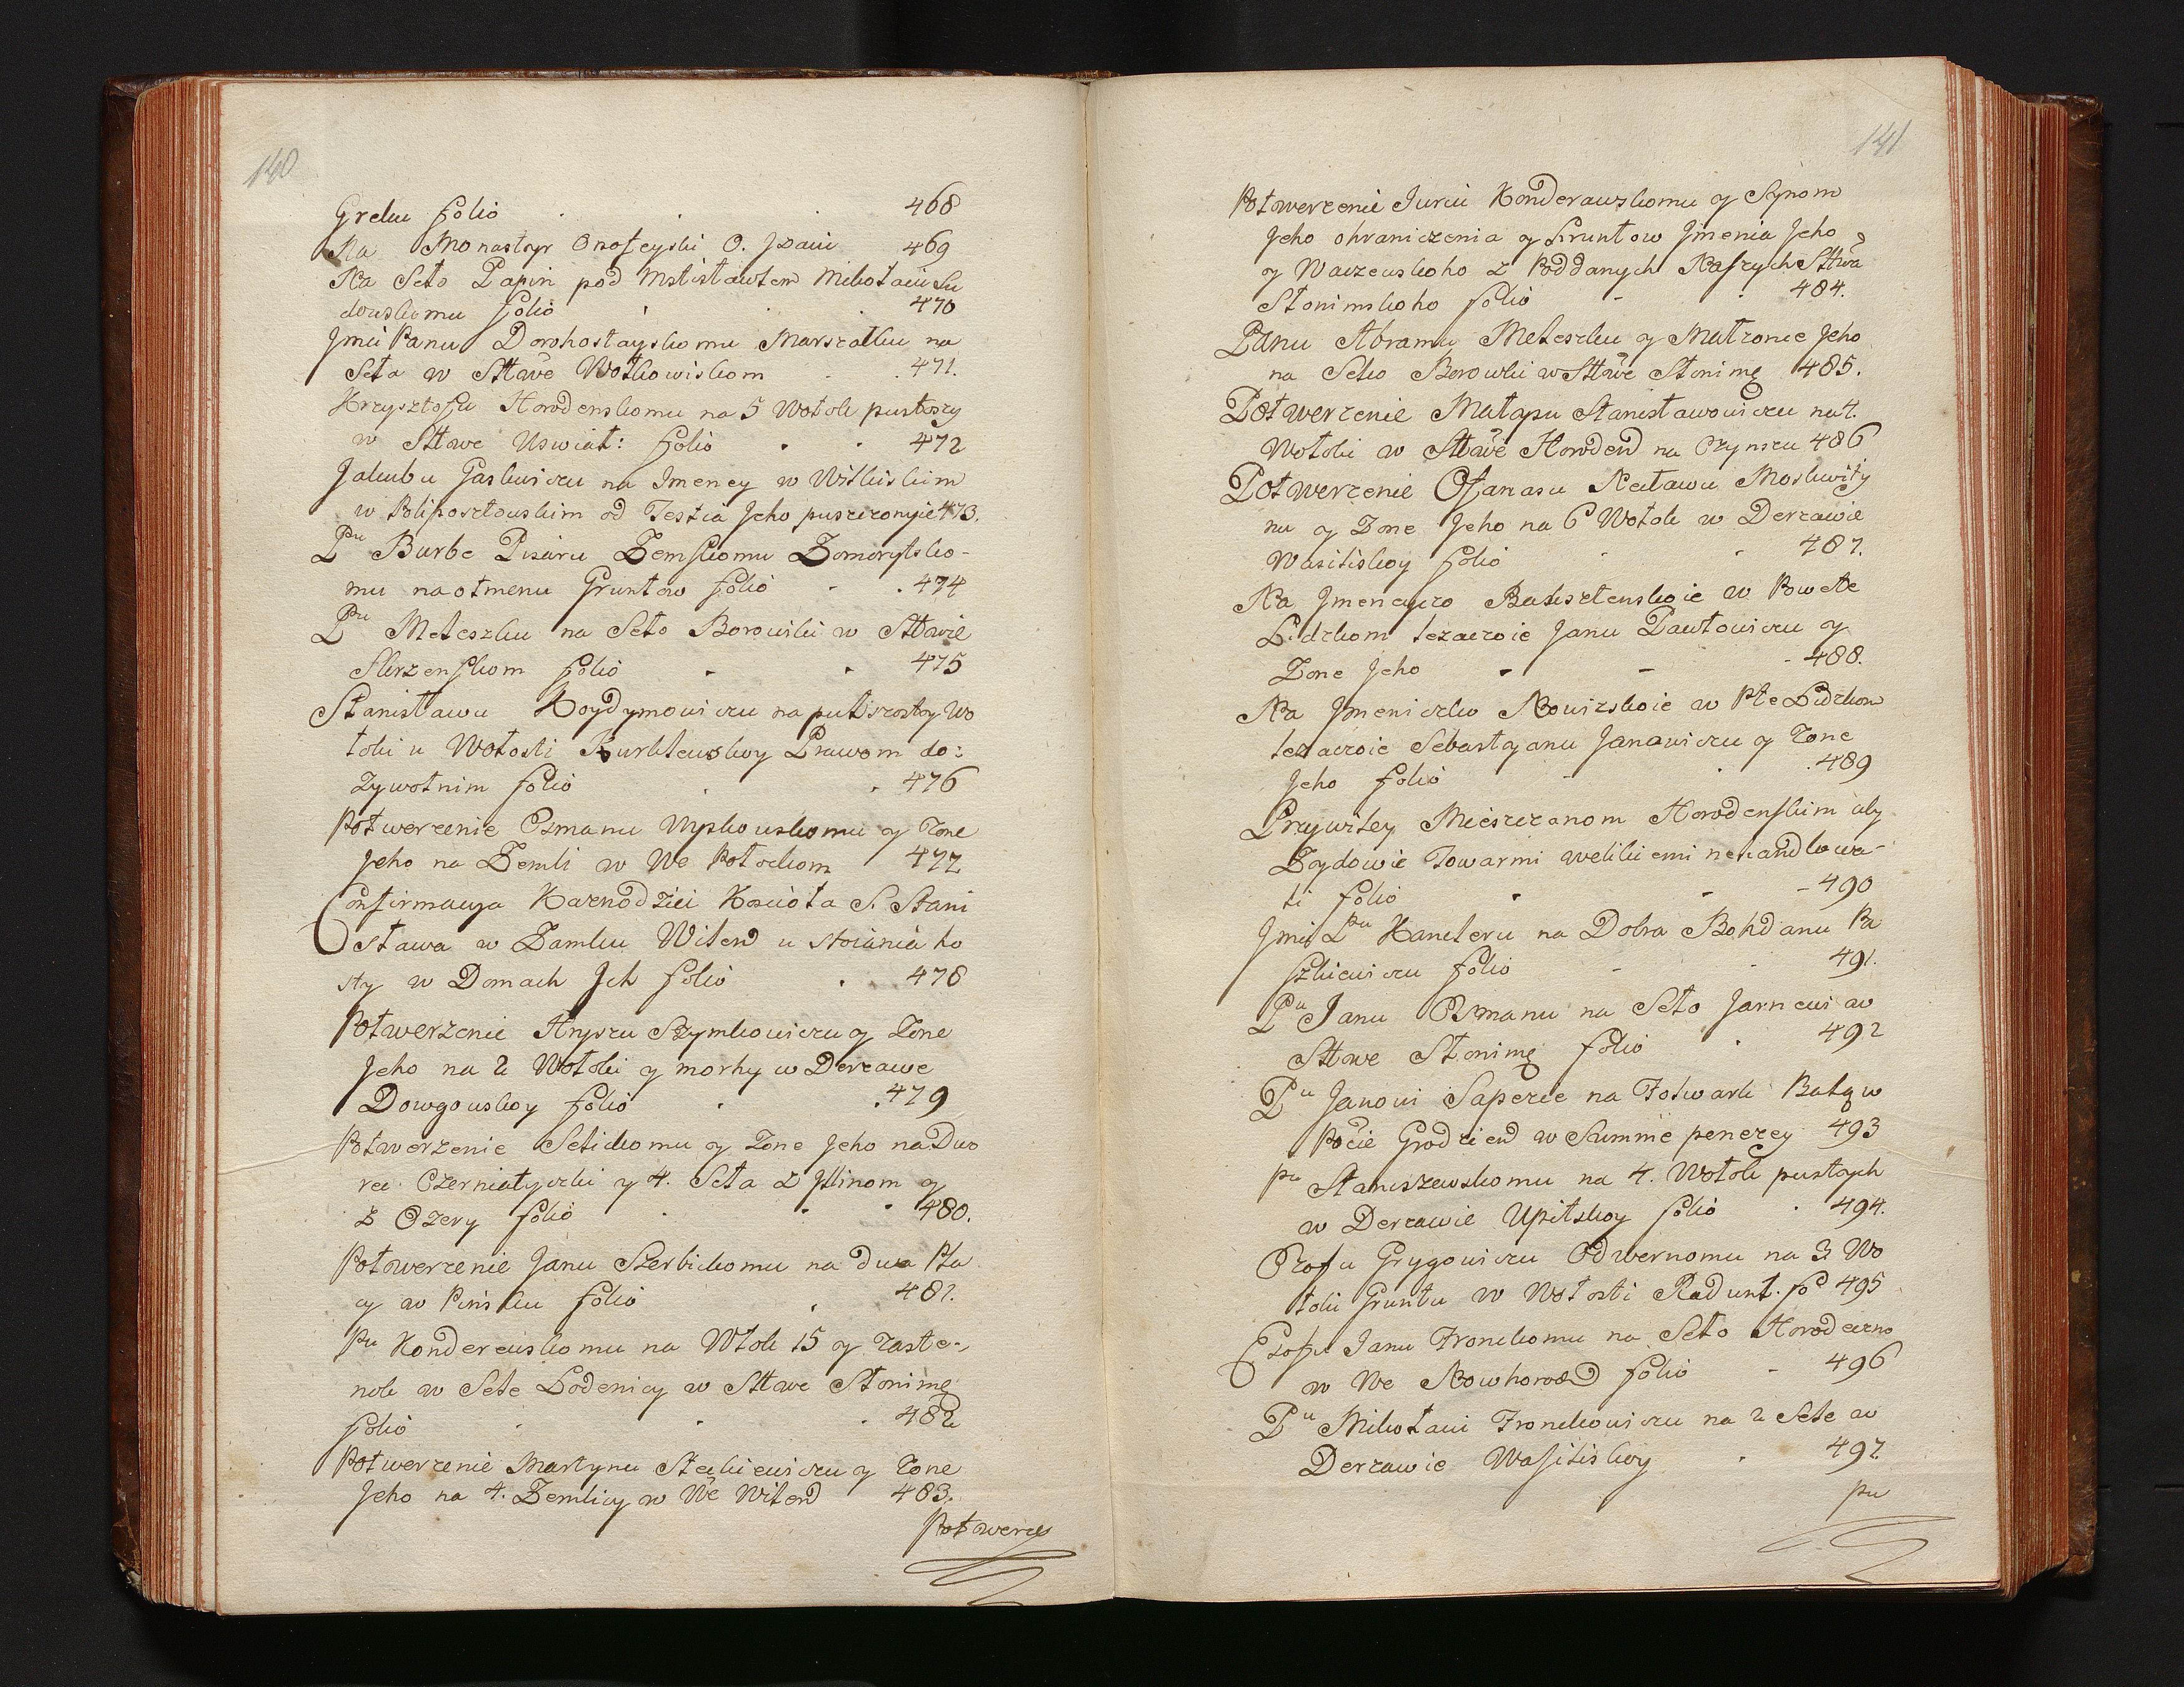 140
Greku folio . . . 468
Na Monastyr Onofeyski O. Jzaiii 469
Na Seło Papin pod Mstisławłem Mikołaiu Su
dowskomu folio . . . 470
Jmći Panu Dorohostayskomu Marszałku na
Seła w Stławe Wołkowiskom . . 471.
Krzysztofu Horodenskomu na 5 Wołok pustoszy
w Stławe Uswiat: folio . . 472
Jakubu Gaskiewiczu na Jmeney w Witkiskim
w Poliposztouskim od Testia Jeho puszczonyie 473.
Pnu Burbe Pisaru Zemskomu Zomoytsko-
mu na otmenu Gruntow folio - . 474
Pnu Meleszku na Seło Borowiki w Stławie
Skrzenskom folio - . 475
Stanisławu Koydymowiczu na puł szosty Wo
łoki u Wołosti Kurklewskoy Prawom do:
żywotnim folio . . 476
Potwerżenie Osmanu Wyskouskomu y Żone
Jeho na Zemli w We Połockom 477
Confirmacya Kaznodziei Kościoła S. Stani
sława w Zamku Wilend u stoiania ho
sty w Domach Jch folio . 478
Potwerżenie Hryszu Szymkowiczu y Żone
Jeho na 2 Wołoki y morhy w Derżawe
Dowgouskoy folio . . 479
Potwerżenie Selickomu y Żone Jeho na Dwo
rec Czerniatycki y 4. Seła z Mlinom y
z Ozery folio . . . 480.
Potwerżenie Janu Szerbickomu na dwa Pla
cy w Pinsku folio . 481.
Pu Kondereuskomu na Włok 15 y Zaste-
nok w Sele Lodenicy w Stławe Słonimę
folio . . . 482
Potwerżenie Martynu Steckiewiczu y Żone
Jeho na 4. Zemlicy w We Wilend 483.
Potwerż
141
Potwerżenie Juriu Konderauskomu y Synom
Jeho ohraniczenia y Gruntow Jmenia Jeho
y Waczeuskoho z Poddanych Naszych Stłwa
Słonimskoho folio - . 484.
Panu Abramu Meleszku y Małżonce Jeho
na Selco Borowki w Stłowe Słonimę 485.
Potwerżenie Matysu Stanisławowiczu na 4.
Wołoki w Stławe Horodend na Czynszu 486
Potwerżenie Ofanasu Kaławu Moskwity
nu y Żone Jeho na 6 Wołok w Derżawie
Wasiliskoy folio . - 487.
Na Jmeniyczo Baksztenskoie w Powete
Lidzkom leżaczoie Janu Pawłowiczu y
Żone Jeho - - - 488.
Na Jmeniczko Nowizskoie w Pte Lidzkom
leżaczoie Sebastyanu Janawiczu y Żone
Jeho folio - . 489
Przywiley Mieszczanom Horodenskim aby
Żydowie Towarmi welikiemi nehandlowa-
ti folio - - - 490
Jmći Pnu Kancleru na Dobra Bohdanu Pa
szkiewiczu folio - - 491.
Pu Janu Osmanu na Seło Jarnewi w
Stłowe Słonimę folio . 492
Pu Janowi Sapezie na Folwark Bałą w
Pocie Grodziend w Summie penezey 493
Pu Staniszewskomu na 4. Wołok pustych
w Derżawie Upitskoy folio . 494.
Ozofu Grygowiczu Odwernomu na 3 Wo
łoki Gruntu w Wołosti Radunt. fo 495
Ezofu Janu Fronckomu na Seło Horodeczno
w We Nowhorod folio - 496
Pu Mikołaiu Fronckowiczu na 2 Sele w
Derżawie Wasiliskoy . 497.
Pu